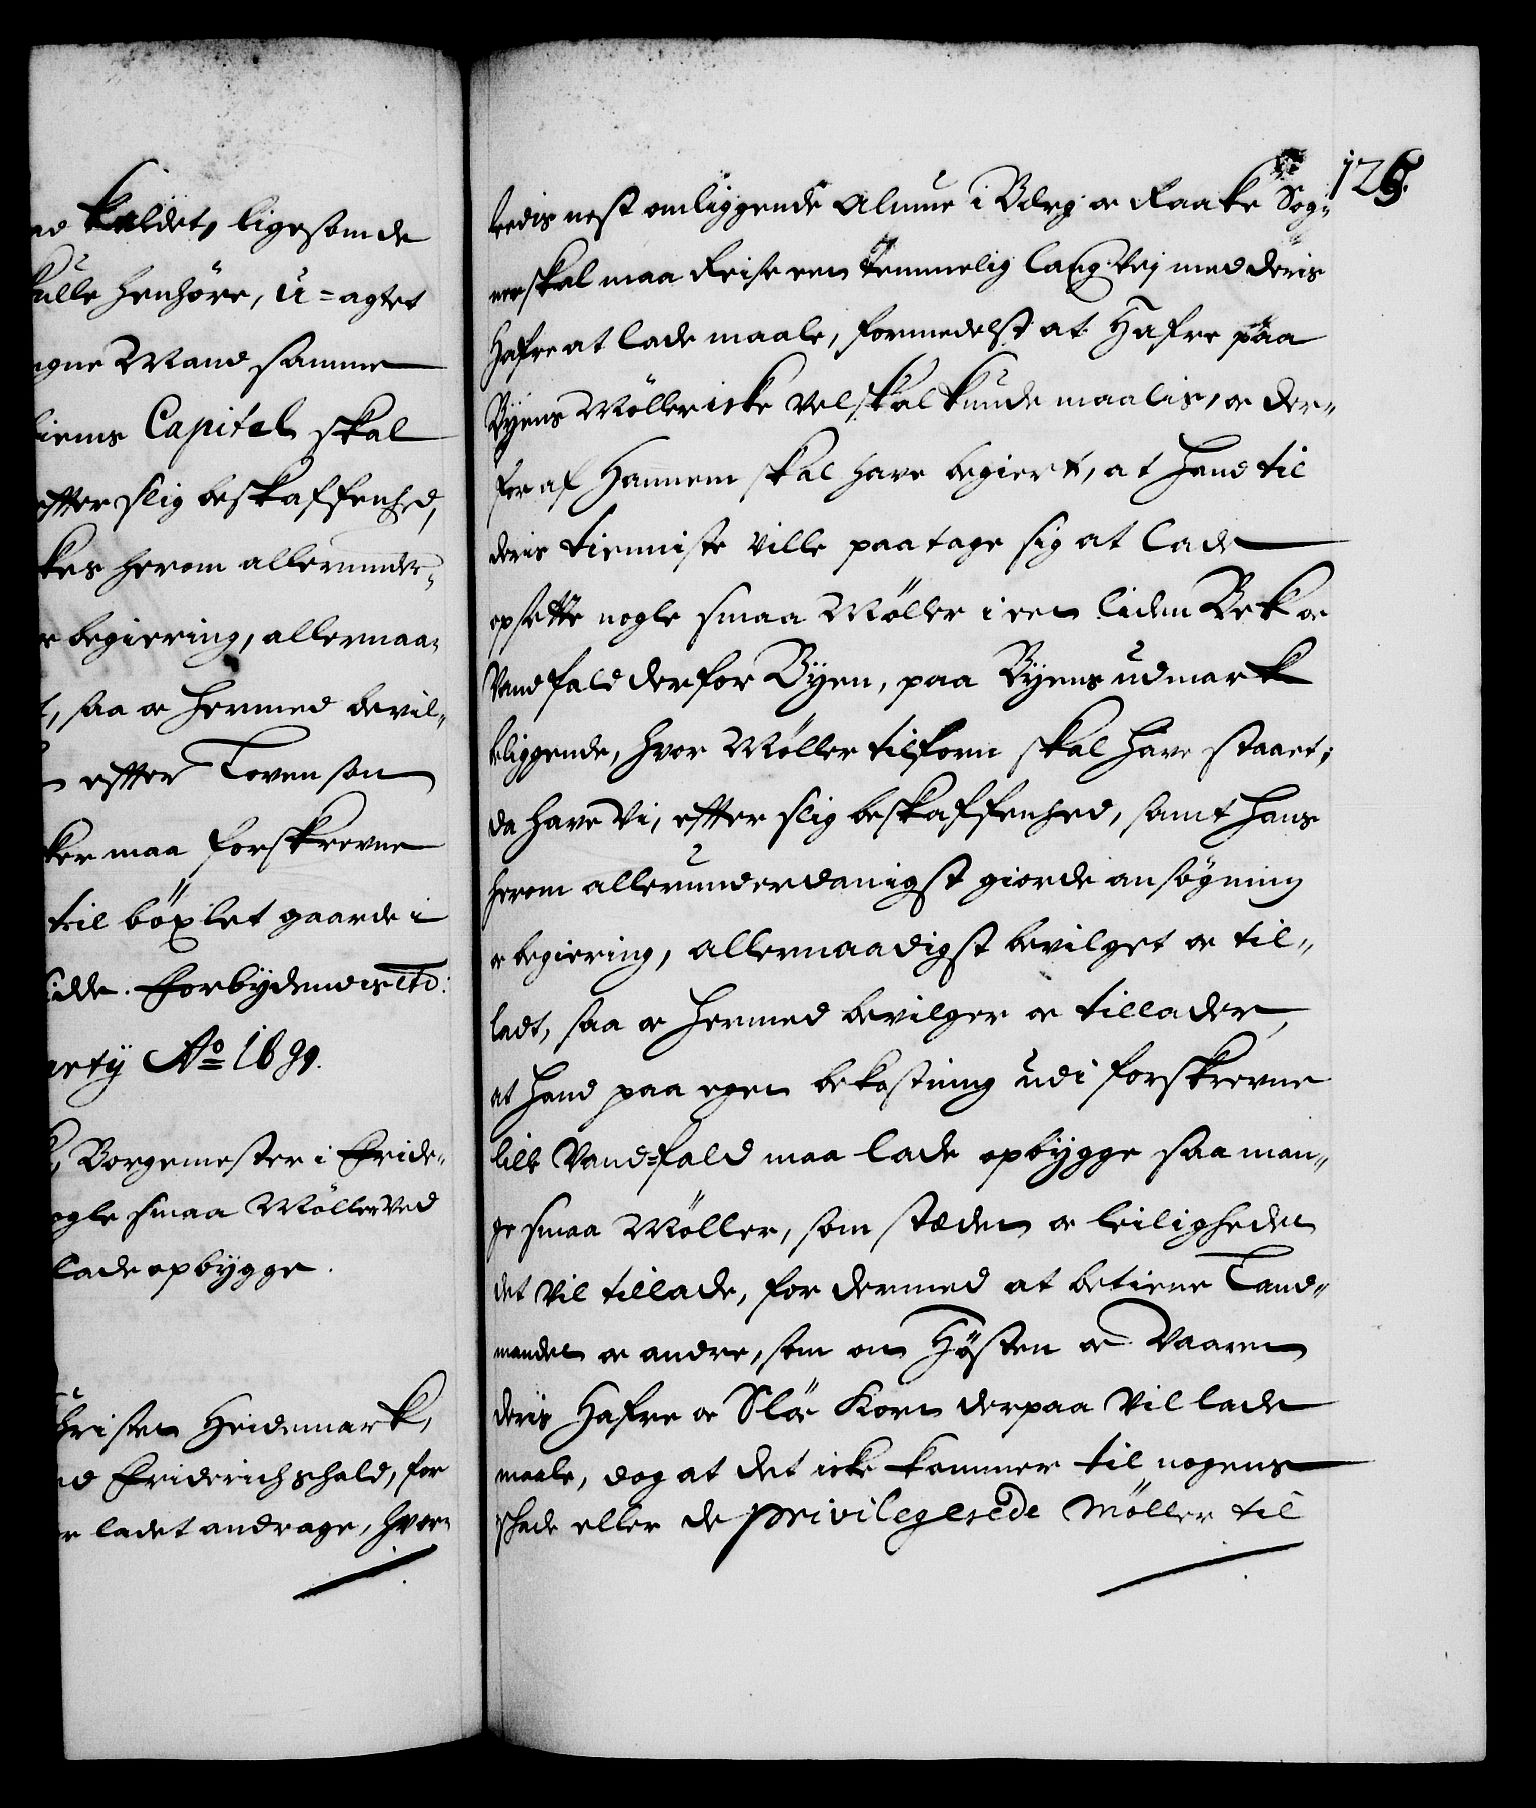 kaldet, ligesom de
henhöre, u=agtet
Mand samme
Capital skal
efter slig beskaffenhed,
herom allerunder-
begiering, allernaa-
saa oc hermed bevil-
efter Loven som
maa forskrevne
til böxlet gaarde i
Forbydendis etc:
Aº 1691.
Borgemester i Fride-
smaa Möller ved
lade opbygge.
Christen Heidemark,
Friderichshald, for
ladet andrage, hvor-
126.
ledis nest omliggende Almue i Berg oc Raake Sog-
ner skal maa Reise en temmelig lang Vej med deris
Hafre at lade maale, formedelst at Hafre paa
Byens Möller icke vel skal kunde maalis, oc der-
for af Hannem skal have begiert, at Hand til
deris tienniste ville paatage sig at lade
opsette nogle smaa Möller i een liden Bek oc
Vandfald derfor Byen, paa Byens udmark
beliggende, hvor Möller tilforn skal have staaet;
da have Vi, efter slig beskaffenhed, samt Hans
herom allerunderdanigst giorde ansögning
oc begiering, allernaadigst bevilget oc til-
ladt, saa oc hermed bevilger oc tillader,
at Hand paa egen bekostning udi forskrevne
lille Vand=fald maa lade opbygge saa man-
ge smaa Möller, som stæden oc leiligheden
det vil tillade, for dermed at betiene Land-
manden oc andre, som om Hösten oc Vaaren
deris Hafre oc Slöe Korn derpaa vil lade
maale, dog at det icke kommer til nogens
skade eller de privilegerede Möller til